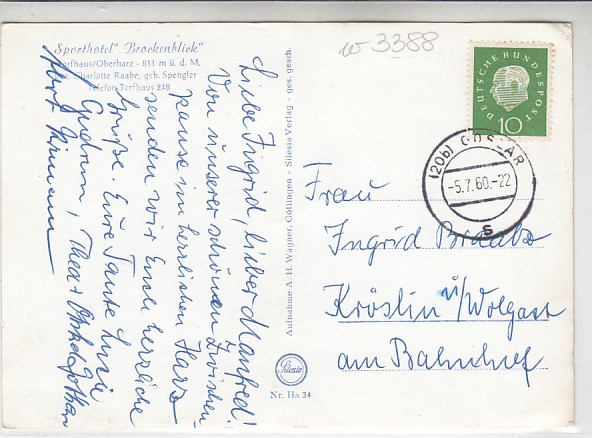 Sporthotel "Brockenblick"
Torfhaus/Oberharz - 811 m ü. d. M.
Charlotte Raabe, geb. Spengler
Telefon Torfhaus 248
Liebe Ingrid, lieber Manfred!
Von unserer schönen Zwischen-
pause im herrlichen Harz
senden wir Euch herzliche
Grüße. Eure Tante
Gudrun, Thea +
Aufnahme A. H. Wagner, Göttingen - Silesia Verlag - ges. gesch.
Silesia
Nr. Ha 34
w 3388
DEUTSCHE BUNDESPOST
10
(20b) GOSLAR
-5.7.60.-22
s
Frau
Ingrid
Kröslin ü/Wolgast
am Bahnhof